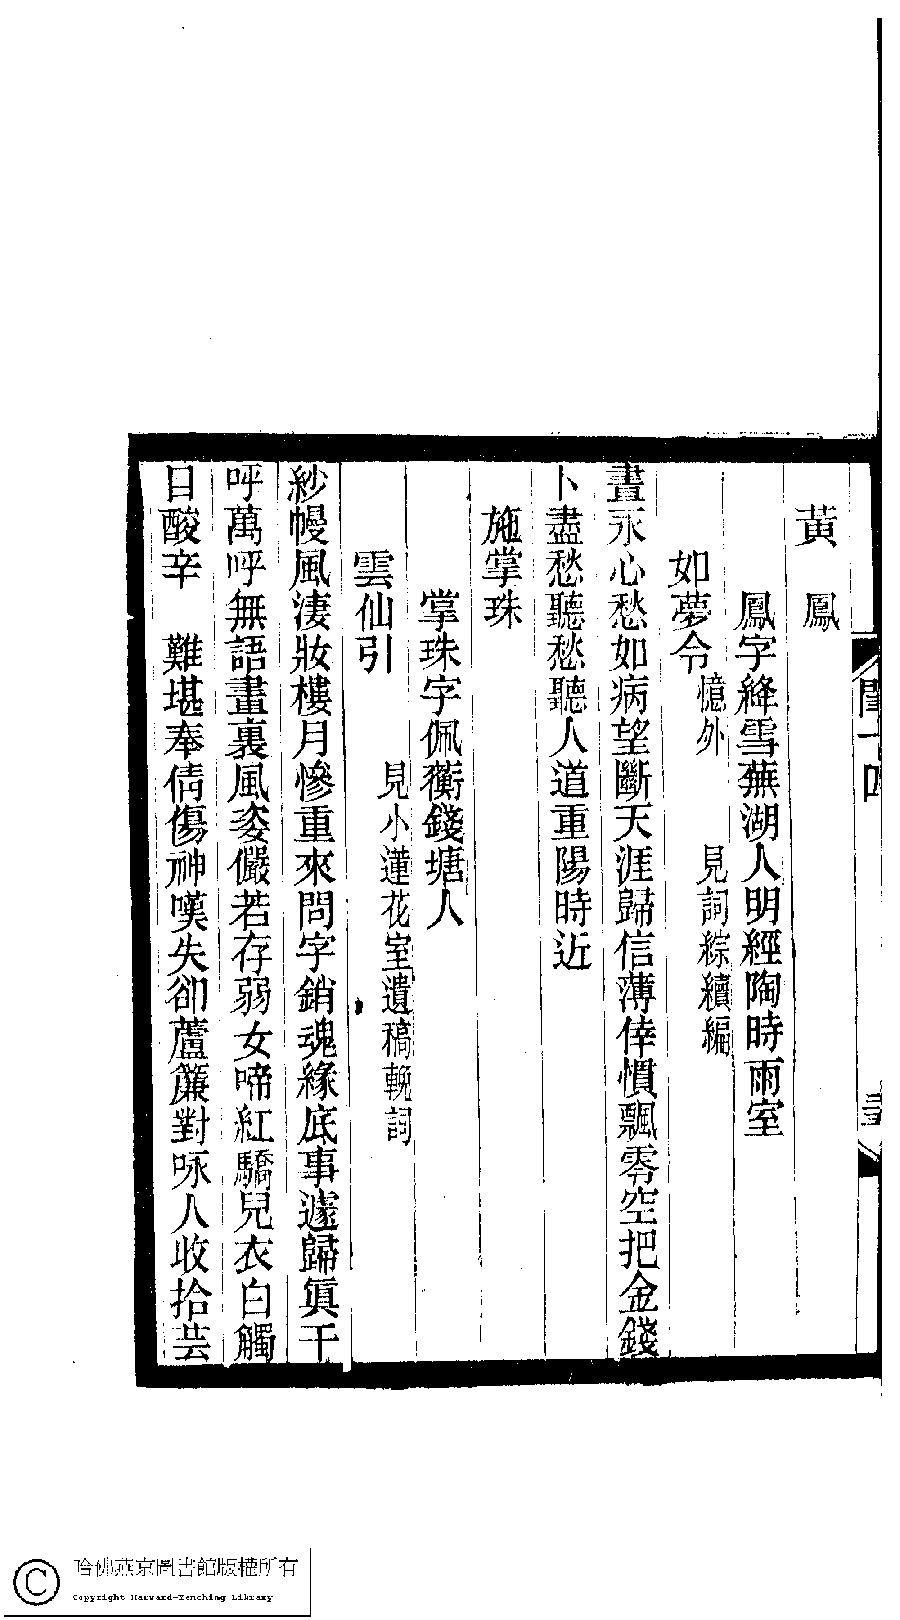 閨十四
黃　鳳
鳳字絳雪蕪湖人明經陶時雨室
如夢令 憶外　見詞綜續編
晝永心愁如病望斷天涯歸信薄倖慣飄零空把金錢
卜盡愁聽愁聽人道重陽時近
施掌珠
掌珠字佩蘅錢塘人
雲仙引 見小蓮花室遺稿輓詞
紗幔風淒妝樓月慘重來問字銷魂緣底事遽歸眞千
呼萬呼無語畫裏風姿儼若存弱女啼紅驕兒衣白觸
目酸辛　難堪奉倩傷神嘆失卻蘆簾對咏人收拾芸
哈佛燕京圖書館版權所有
Copyright Harvard-Yenching Library